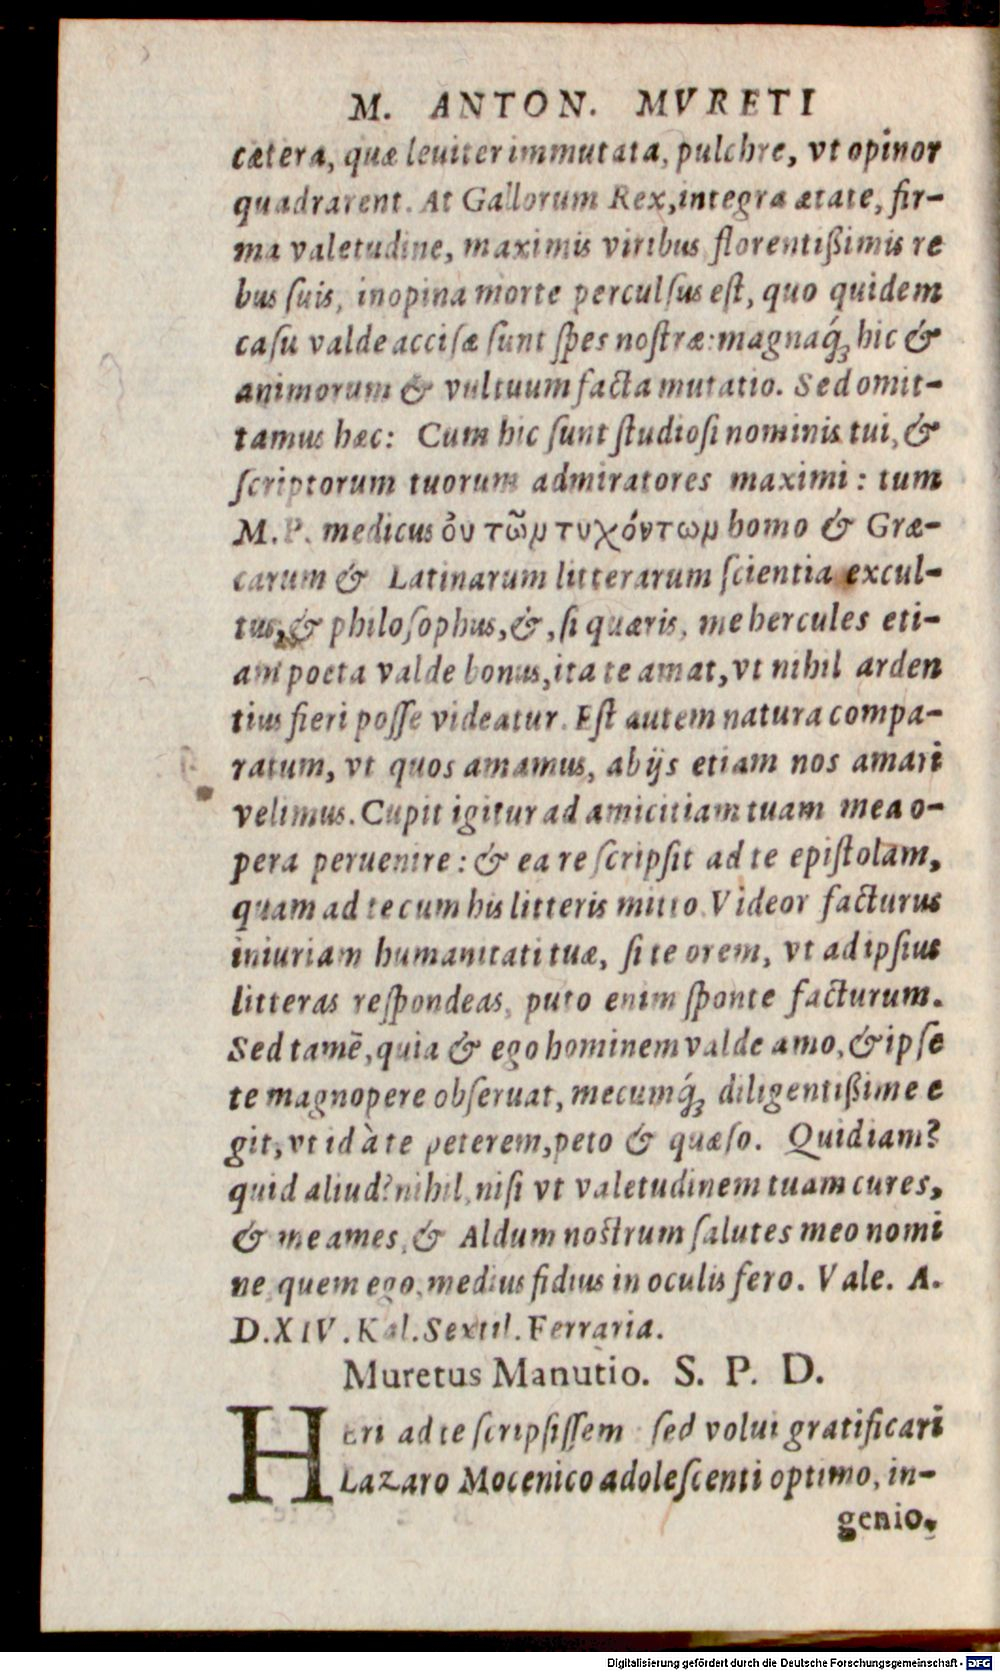 M. ANTON. MVRETI
cætera, quæ leuiter immutata, pulchre, vt opinor
quadrarent. At Gallorum Rex, integra ætate, fir-
ma valetudine, maximis viribus florentißimis re
bus suis, inopina morte perculsus est, quo quidem
casu valde accisæ sunt spes nostræ: magnaq́ꝫ hic &
animorum & vultuum facta mutatio. Sed omit-
tamus hæc: Cum hic sunt studiosi nominis tui, &
scriptorum tuorum admiratores maximi: tum
M. P. medicus ὀυ τῶμ τυχόντωμ homo & Græ-
carum & Latinarum litterarum scientia excul-
tus, & philosophus, &, si quæris, mehercules eti-
am poeta valde bonus, ita te amat, vt nihil arden
tius fieri posse videatur. Est autem natura compa-
ratum, vt quos amamus, ab ijs etiam nos amari
velimus. Cupit igitur ad amicitiam tuam mea o-
pera peruenire: & ea re scripsit ad te epistolam,
quam ad te cum his litteris mitto. Videor facturus
iniuriam humanitati tuæ, si te orem, vt ad ipsius
litteras respondeas, puto enim sponte facturum.
Sed tamē, quia & ego hominem valde amo, & ipse
te magnopere obseruat, mecumq́ꝫ diligentißime e
git, vt id à te peterem, peto & quæso. Quid iam?
quid aliud? nihil, nisi vt valetudinem tuam cures,
& me ames, & Aldum nostrum salutes meo nomi
ne, quem ego, medius fidius in oculis fero. Vale. A.
D. XIV. Kal. Sextil. Ferraria.
Muretus Manutio. S. P. D.
HEri ad te scripsissem sed volui gratificari
Lazaro Mocenico adolescenti optimo, in-
genio,
Digitalisierung gefördert durch die Deutsche Forschungsgemeinschaft - DFG